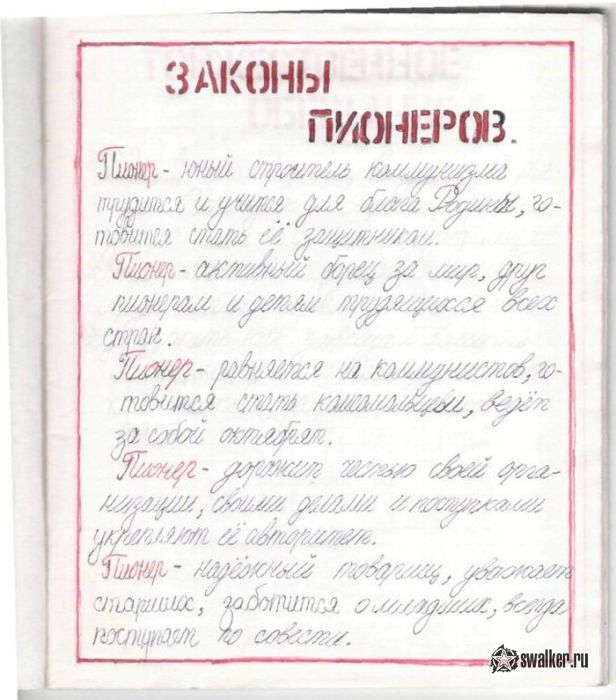 ЗАКОНЫ
ПИОНЕРОВ.
Пионер - юный строитель коммунизма
трудится и учится для блага Родины, го-
товится стать её защитником.
Пионер - активный борец за мир, друг
пионерам и детям трудящихся всех
стран.
Пионер - равняется на коммунистов, го-
товится стать комсомольцем, ведёт
за собой октябрят.
Пионер - дорожит честью своей орга-
низации, своими делами и поступками
укрепляют её авторитет.
Пионер - надёжный товарищ, уважает
старших, заботится о младших, всегда
поступает по совести.
swalker.ru